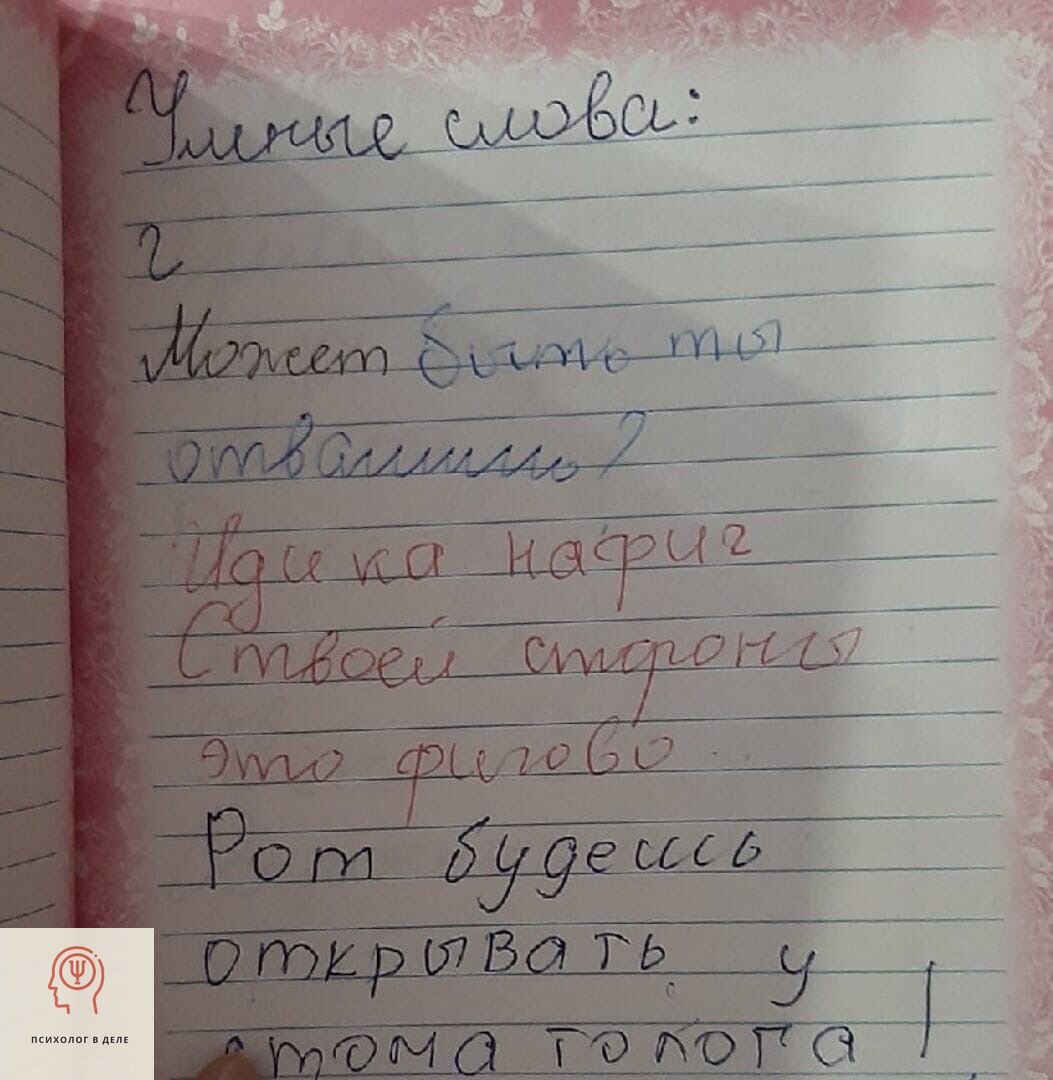 Умные слова:
2
Может быть ты
отвалишь?
Иди ка нафиг
С твоей стороны
это фигово
Рот будешь
открывать у
стоматолога!
ПСИХОЛОГ В ДЕЛЕ